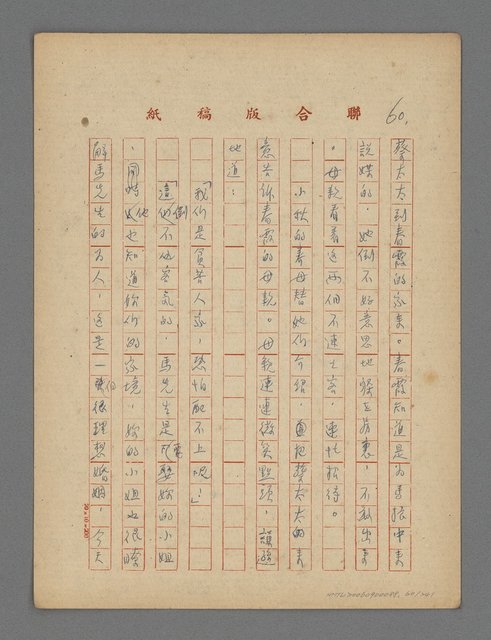 聯合版稿紙
60.
蔡太太到春霞的家來。春霞知道是為馬振中來
說媒的，她倒不好意思地躲在房裏，不敢出來
。母親看着這兩個不速之客，連忙招待。
小秋的養母替她們介紹，直把蔡太太的來
意告訴春霞的母親。母親連連微笑點頭，謙遜
地道：
「我們是貧苦人家，恐怕配不上呢！」
「這倒不必客氣的，馬先生是要娶妳的小姐
，同時他也知道妳們的家境，妳的小姐也很瞭
解馬先生的為人，這是一個很理想婚姻，今天
20×10=200